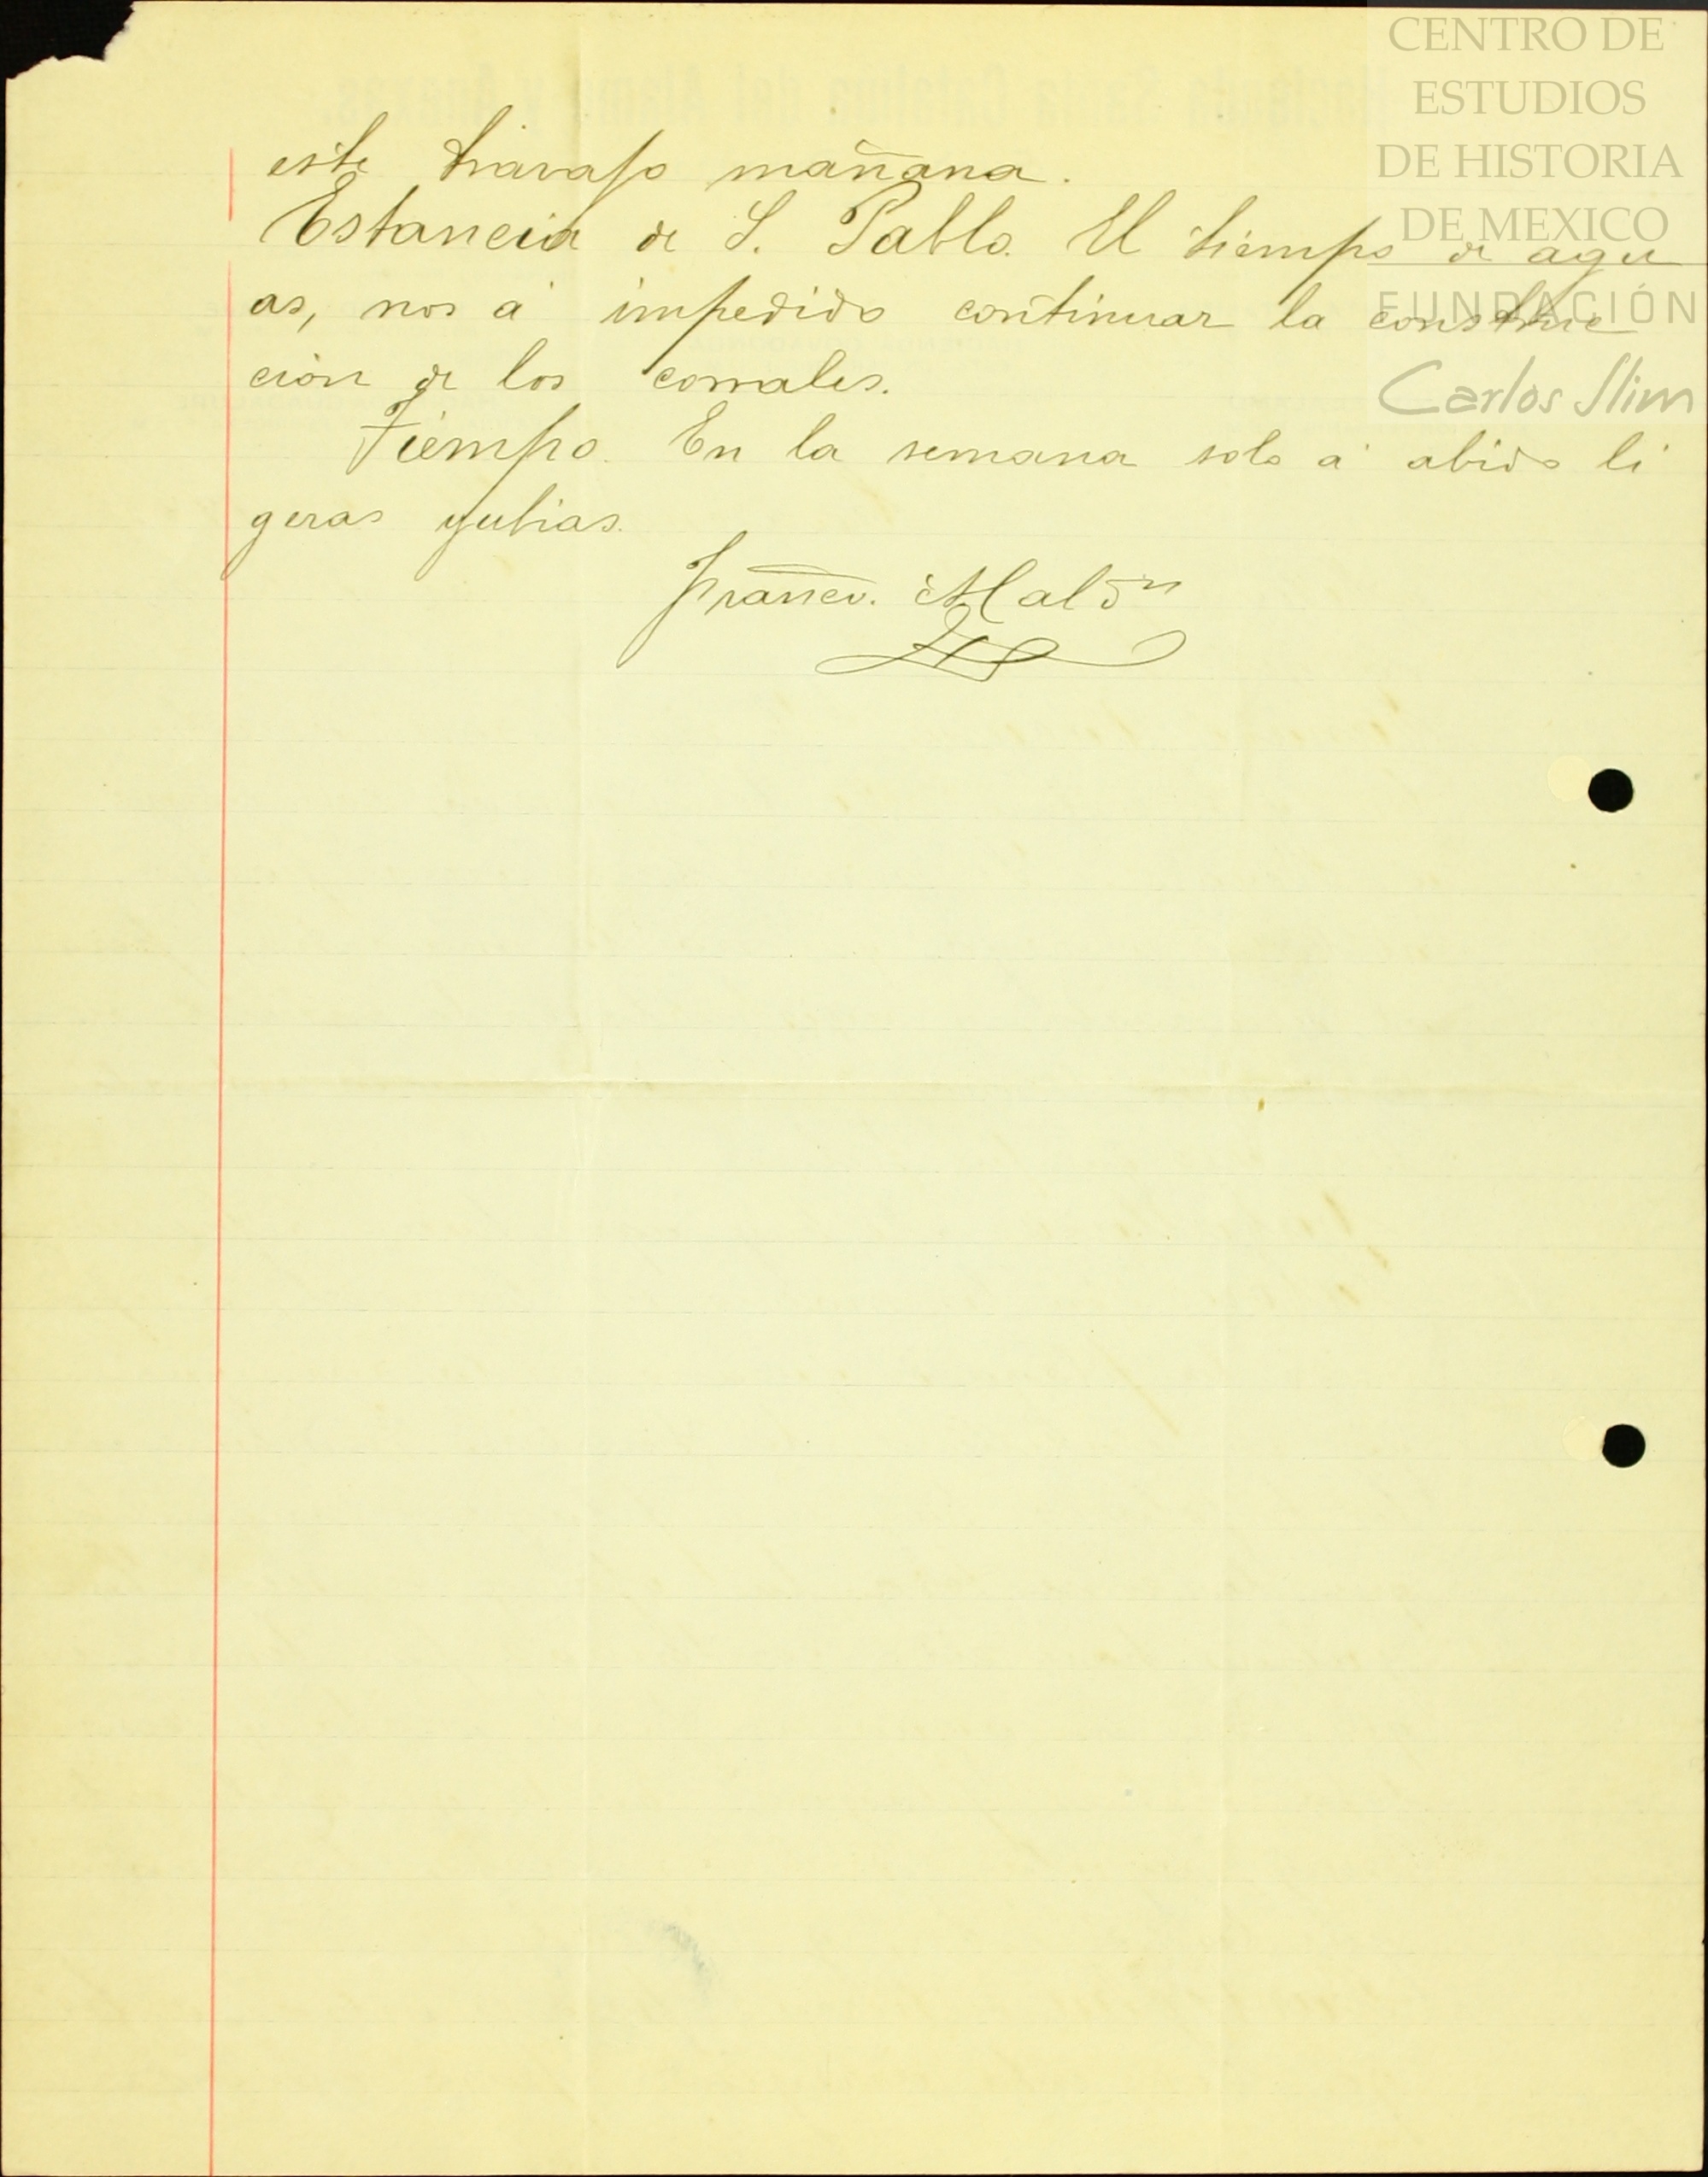 CENTRO DE
ESTUDIOS
DE HISTORIA
DE MEXICO
FUNDACIÓN
Carlos Slim
este travajo mañana.
Estancia de S. Pablo. El tiempo de agu
as, nos á impedido continuar la construc
cion de los corrales.
Tiempo. En la semana solo á abido li
geras yubias.
Franco. Maldn